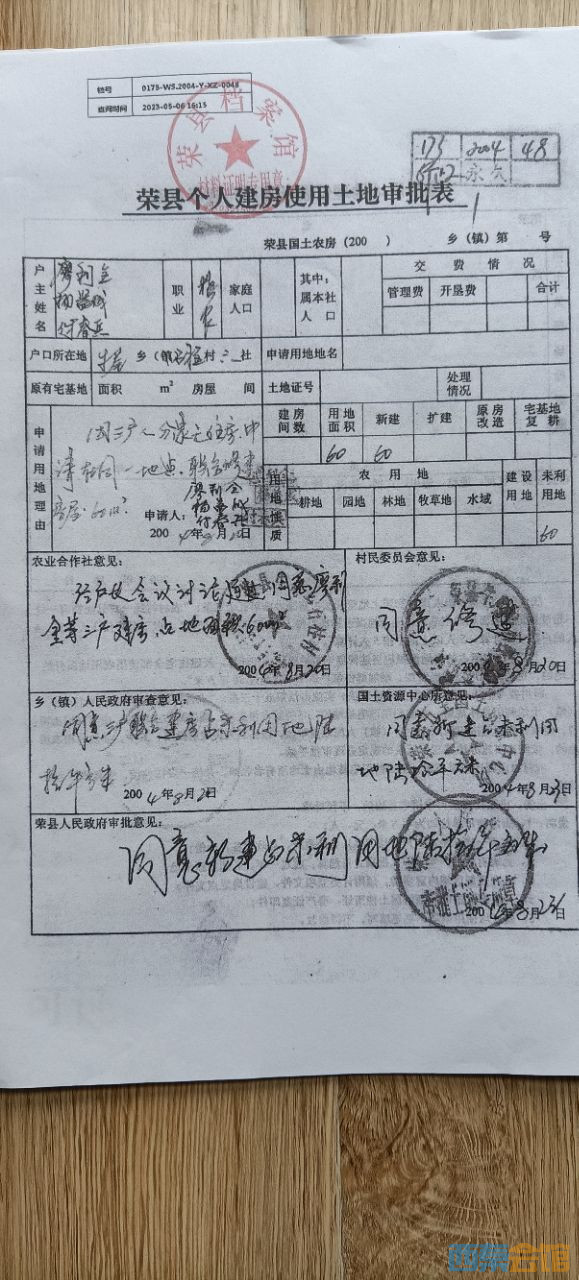 档号 0175-WS.2004-Y-XZ-0048
查阅时间 2023-05-06 16:15
荣县档案馆
材料证明专用章
175 2004 48
永久
荣县个人建房使用土地审批表
荣县国土农房(200 ) 乡(镇)第 号
户主姓名 廖利全
职业
家庭人口
其中:属本社人口
交费情况
管理费 开垦费 合计
户口所在地 乡(镇) 村 社 申请用地地名
原有宅基地 面积 m² 房屋 间 土地证号 处理情况
申请用地理由
因三户人分家无住房.申
请在同一地点.联合修建
房屋.60m².
申请人: 廖利全
2004年8月20日
建房间数 用地面积 新建 扩建 原房改造 宅基地复耕
60 60
用地性质
农用地 建设用地 未利用地
耕地 园地 林地 牧草地 水域
60
农业合作社意见:
经户代会议讨论通过,同意廖利
全等三户建房占地面积60m²
2004年8月20日
村民委员会意见:
同意修建.
2004年8月20日
乡(镇)人民政府审查意见:
同意三户联合建房占未利用地陆
拾平方米
2004年8月2 日
国土资源中心所意见:
同意新建占未利用
地陆拾平方米
2004年8月23日
荣县人民政府审批意见:
同意新建占未利用地陆拾平方米
2004年8月23日